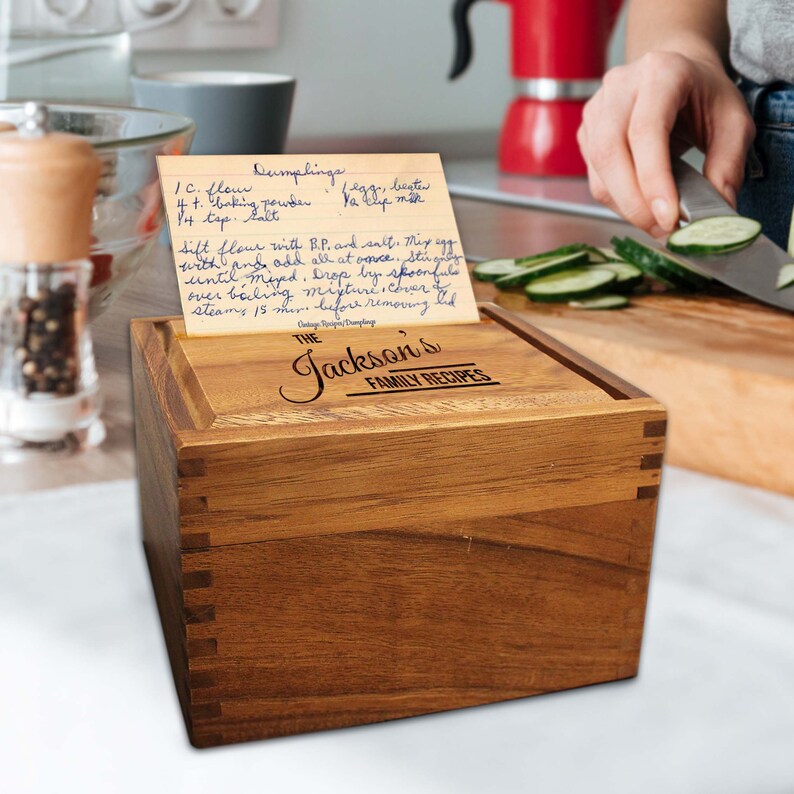 Dumplings
1 c. flour 1 egg, beaten
4 t. baking powder 1/2 cup milk
1/4 tsp. salt
Sift flour with B.P. and salt. Mix egg
with and add all at once. Stir only
until mixed. Drop by spoonfuls
over boiling mixture. Cover &
steam, 15 min. before removing lid
Vintage.Recipes/Dumplings
THE
Jackson's
FAMILY RECIPES